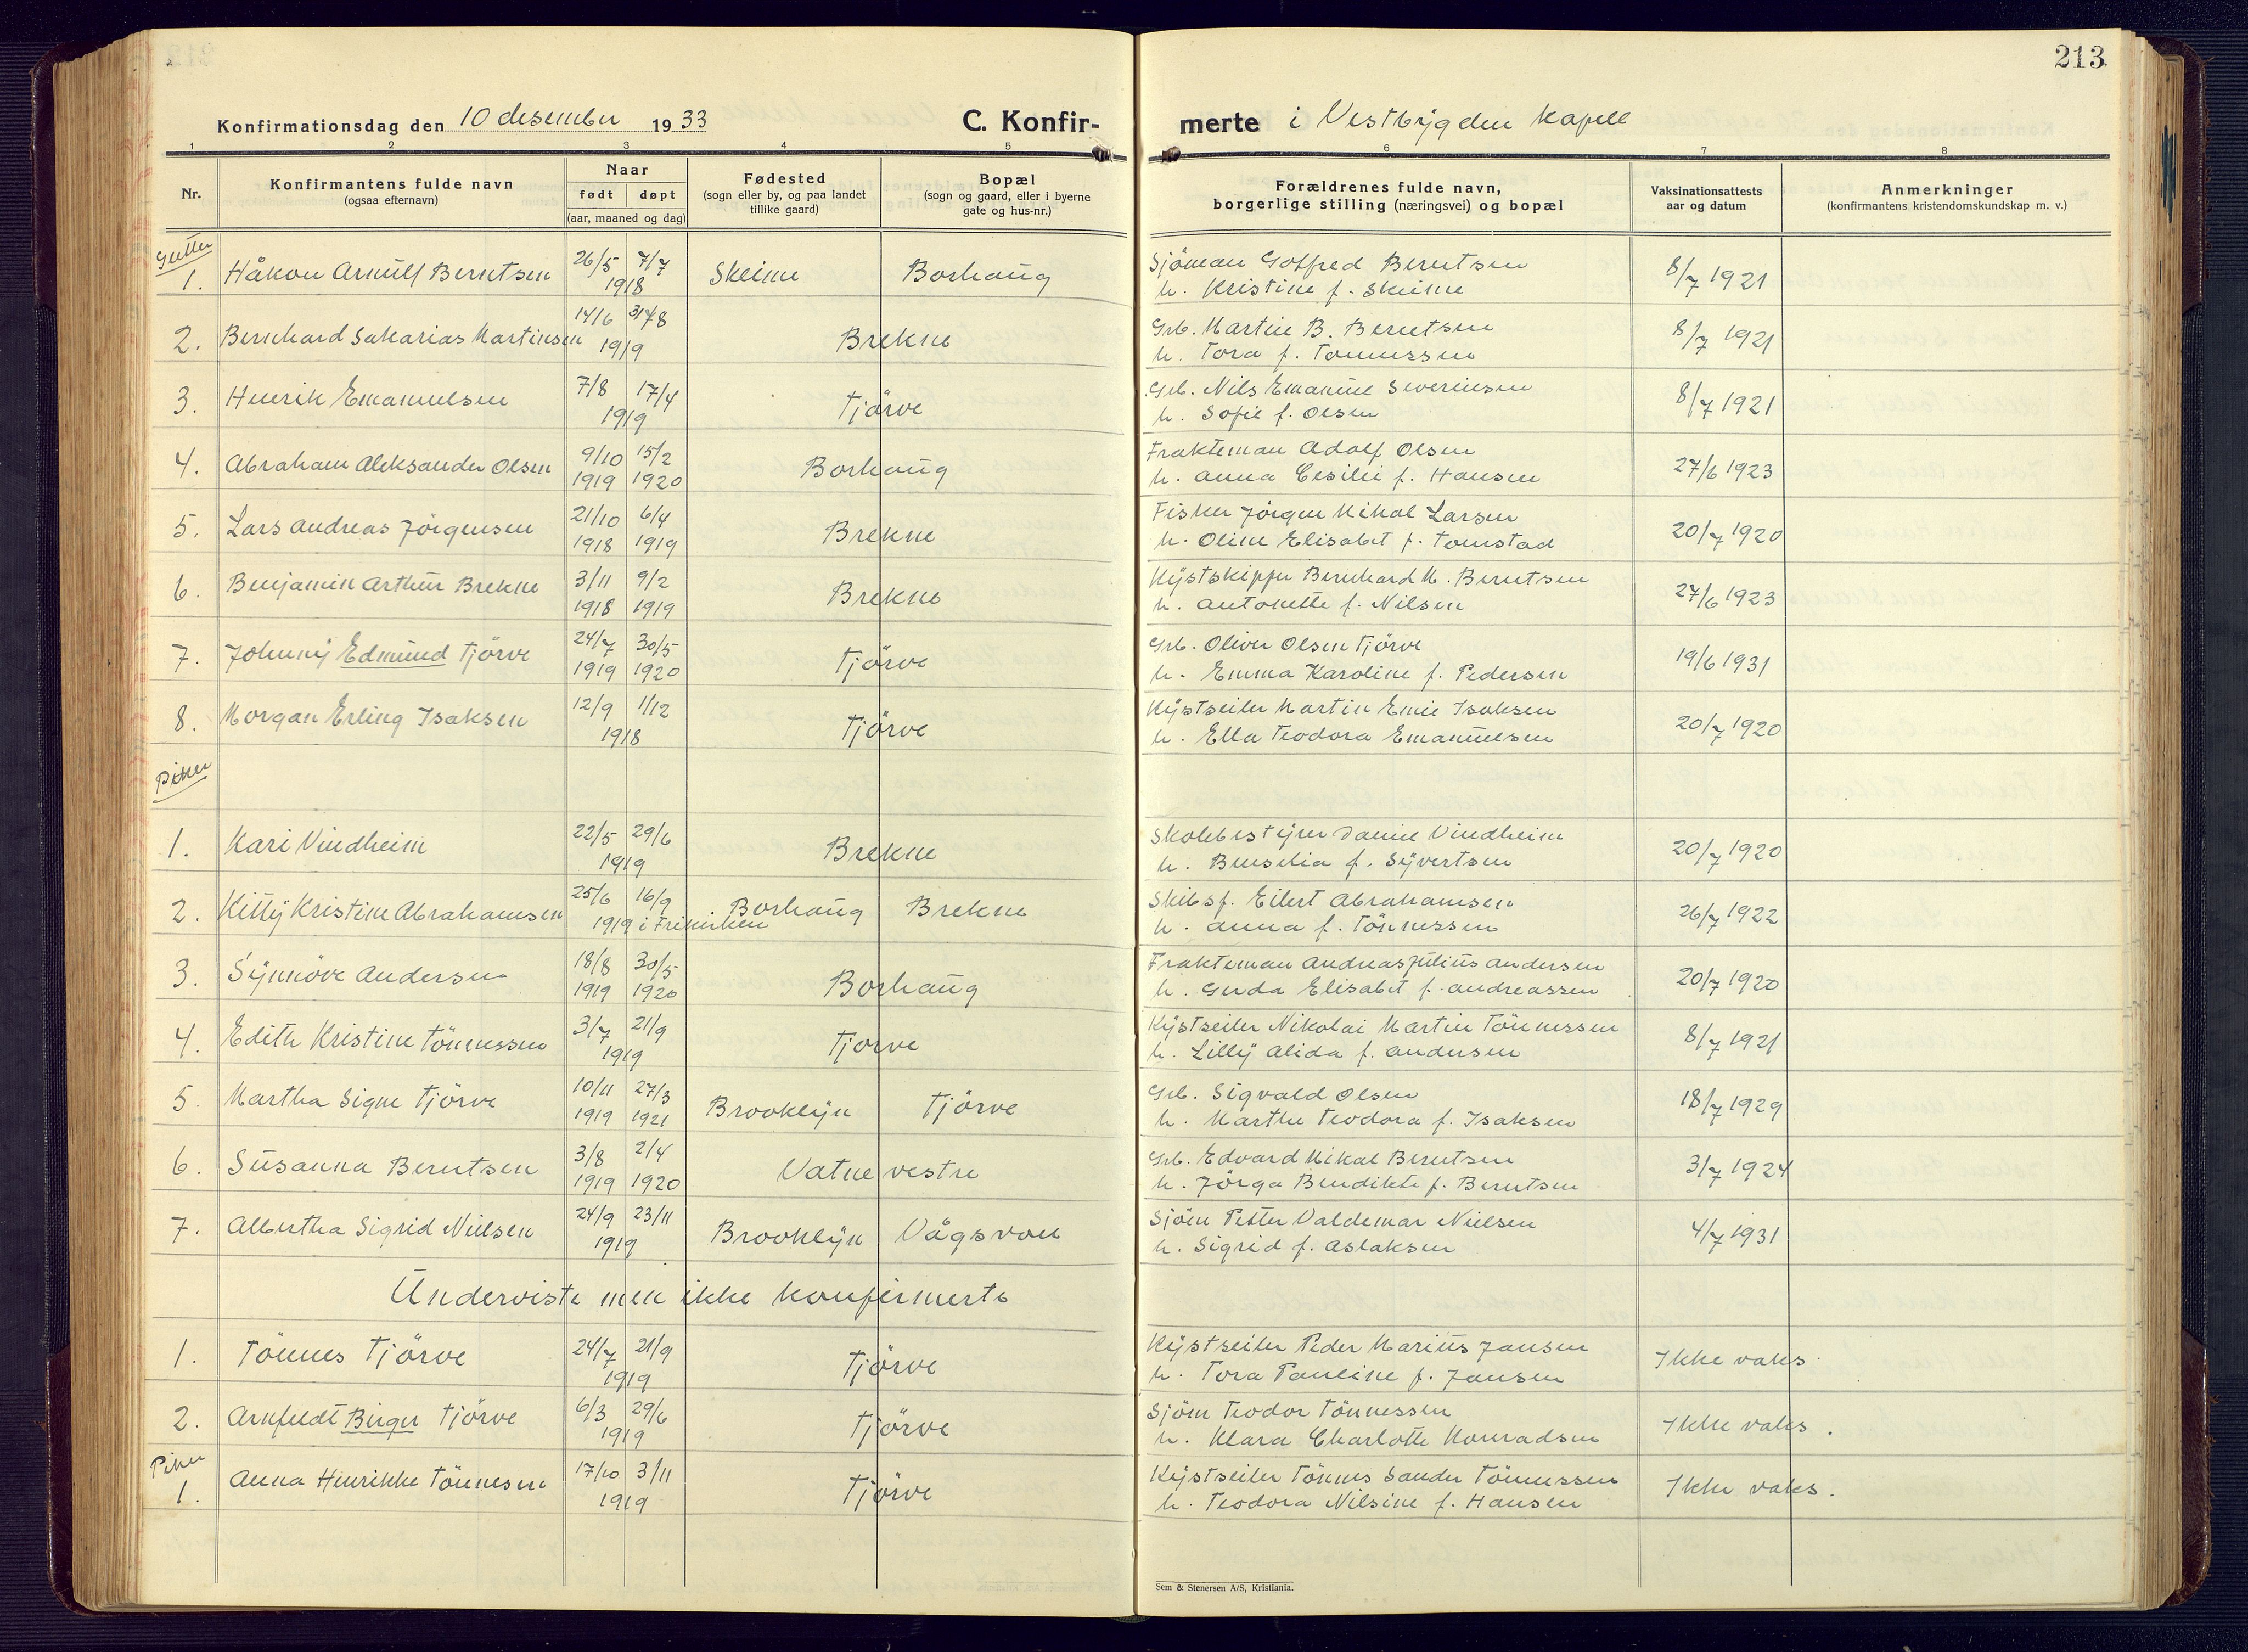 213
Konfirmationsdag den 10 desember 1933
C. Konfirmerte i Vestbygden kapell
1 2 3 4 5 6 7 8
Nr.
Konfirmantens fulde navn
(ogsaa efternavn)
Naar
født døpt
(aar, maaned og dag)
Fødested
(sogn eller by, og paa landet
tillike gaard)
Bopæl
(sogn og gaard, eller i byerne
gate og hus-nr.)
Forældrenes fulde navn,
borgerlige stilling (næringsvei) og bopæl
Vaksinationsattests
aar og datum
Anmerkninger
(konfirmantens kristendomskundskap m. v.)
Gutter
1. Håkon Arnulf Berntsen 26/5 7/7 1918 Skeime Borhaug Sjömann Gotfred Berntsen
h. Kristine f. Skeime 8/7 1921
2. Bernhard Sakarias Martinsen 14/6 31/8 1919 Brekne Grb. Martin B. Berntsen
h. Tora f. Tønnessen 8/7 1921
3. Henrik Emanuelsen 7/8 17/4 1919 Tjörve Grb. Nils Emanuel Severinsen
h. Sofie f. Olsen 8/7 1921
4. Abraham Aleksander Olsen 9/10 1919 15/2 1920 Borhaug Frakteman Adolf Olsen
h. Anna Cesilie f. Hansen 27/6 1923
5. Lars Andreas Jörgensen 21/10 1918 6/4 1919 Brekne Fisker Jörgen Mikal Larsen
h. Oline Elisabet f. Tomstad 20/7 1920
6. Benjamin Arthur Brekne 3/11 1918 9/2 1919 Brekne Kystskipper Bernhard M. Berntsen
h. Antonette f. Nilsen 27/6 1923
7. Johnny Edmund Tjörve 24/7 1919 30/5 1920 Tjörve Grb. Oliver Olsen Tjörve
h. Emma Karoline f. Pedersen 19/6 1931
8. Morgan Erling Isaksen 12/9 1/12 1918 Tjörve Kystseiler Martin Emil Isaksen
h. Ella Teodora Emanuelsen 20/7 1920
Piker
1. Kari Vindheim 22/5 29/6 1919 Brekne Skolebestyrer Daniel Vindheim
h. Benselia f. Syvertsen 20/7 1920
2. Kitty Kristine Abrahamsen 25/6 16/9 1919 i Frikirken Borhaug Brekne Skibsf. Eilert Abrahamsen
h. Anna f. Tönnessen 26/7 1922
3. Synnöve Andersen 18/8 1919 30/5 1920 Borhaug Frakteman Andreas Julius Andersen
h. Gerda Elisabet f. Andreassen 20/7 1920
4. Edith Kristine Tönnessen 3/7 21/9 1919 Tjorve Kystseiler Nikolai Martin Tönnessen
h. Lilly Alida f. Andersen 8/7 1921
5. Martha Signe Tjörve 10/11 1919 27/3 1921 Brooklyn Tjörve Grb. Sigvald Olsen
h. Marthe Teodora f. Isaksen 18/7 1929
6. Susanna Berntsen 3/8 1919 2/4 1920 Vatne vestre Grb. Edvard Mikal Berntsen
h. Jörga Bendikte f. Berntsen 3/7 1924
7. Albertha Sigrid Nielsen 24/9 23/11 1919 Brooklyn Vågsvoll Sjöm Petter Valdemar Nielsen
h. Sigrid f. Aslaksen 4/7 1931
Underviste men ikke konfirmerte
1. Tönnes Tjörve 24/7 21/9 1919 Tjörve Kystseiler Peder Marius Jansen
h. Tora Pauline f. Jansen Ikke vaks.
2. Arnfeldt Birger Tjörve 6/3 29/6 1919 Tjörve Sjöm Teodor Tönnessen
h. Klara Charlotte Konradsen Ikke vaks.
Piker
1. Anna Henrikke Tönnesen 17/10 3/11 1919 Tjörve Kystseiler Tönnes Sander Tönnessen
h. Teodora Nilsine f. Hansen Ikke vaks.
Sem & Stenersen A/S, Kristiania.